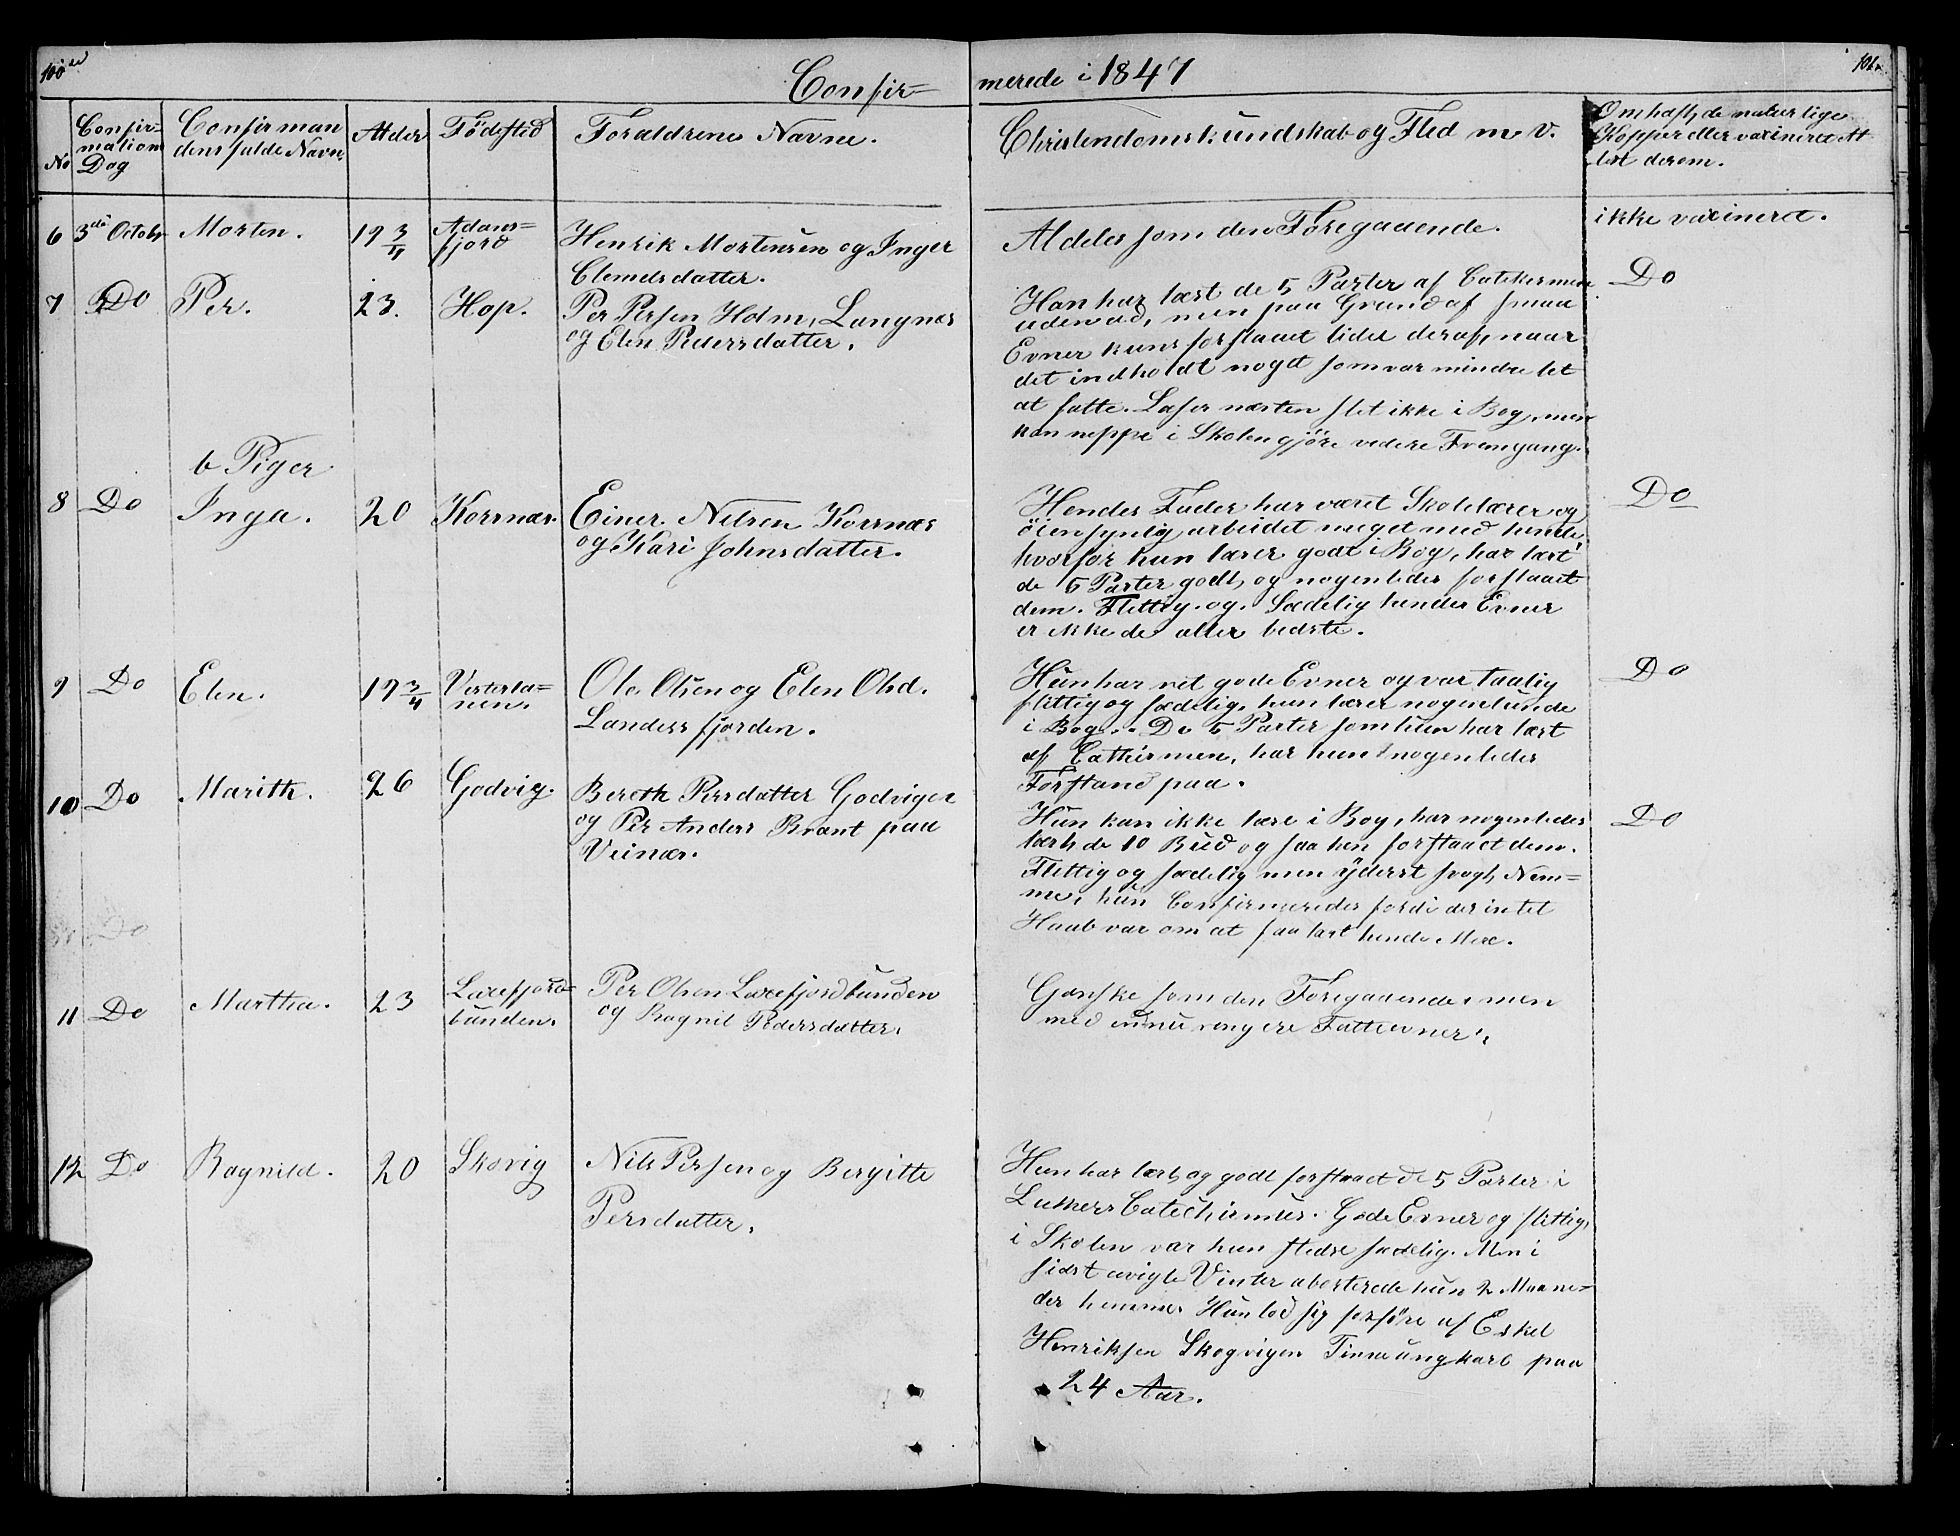 100
101
Confir=
merede i 1847
No
Confir=
mations
Dag
Confirman
dens fulde Navn
Alder
Födested
Forældrenes Navne.
Christendomskundskab og Flid m. v.
Om haft de naturlige
Kopper eller vaxineret At
test derom.
6 3die Octobr Morten. 19 3/4 Adams=
fjord
Henrik Mortensen og Inger
Clemetsdatter.
Aldeles som den Foregaaende.
ikke vaxineret.
7 Do Per. 23. Hop.
Per Persen Holm, Langnæs
og Elen Pedersdatter.
Han har lært de 5 Parter af Catekismen
udenad, men paa Grund af smaa
Evner kuns forstaaet lidet deraf, naar
det indholdt noget som var mindre let
at fatte. Læser næsten slet ikke i Bog, men
kan neppe i Skolen gjöre videre Fremgang.
Do
b Piger
8 Do Inga. 20 Korsnæs.
Einer Nilsen Korsnæs
og Kari Johnsdatter.
Hendes Fader har været Skolelærer og
öiensynlig arbeidet meget med hende,
hvorfor hun læser godt i Bog, har lært
de 5 Parter godt, og nogenledes forstaaet
dem. Flittig og Sædelig hendes Evner
er ikke de aller bedste.
Do
9 Do Elen. 19 3/4 Vesterta=
nen.
Ole Olsen og Elen Olsd.
Landersfjorden.
Hun har ret gode Evner og var taalig
flittig og sædelig, hun læser nogenlunde
i Bog. De 5 Parter som hun har lært
af Cathismen, har hun nogenledes
Forstand paa.
Do
10 Do Marith. 26 Godvig.
Bereth Persdatter Godvigen
og Per Anders Brant paa
Veinæs.
Hun kan ikke læse i Bog, har nogenledes
lært de 10 Bud og saa hen forstaaet dem.
Flittig og sædelig men yderst svagt Nem=
me, hun Confirmeredes fordi der intet
Haab var om at faa lært hende Mere.
Do
Do
11 Do Martha. 23 Laxefjord=
bunden.
Per Olsen Laxefjordbunden
og Ragnil Pedersdatter.
Ganske som den Foregaaende men
med endnu ringere Fatteevner.
12 Do Ragnild. 20 Skovig
Nils Persen og Bergitte
Persdatter.
Hun har lært og godt forstaaet de 5 Parter i
Luthers Catechismus. Gode Evner og flittig,
i Skolen var hun stedse sædelig. Men i
sidst avigte Vinter aborterede hun 2 Maane=
der henne. Hun lod sig forföre af Eskel
Henriksen Skogvigen Finneungkarl paa
24 Aar.